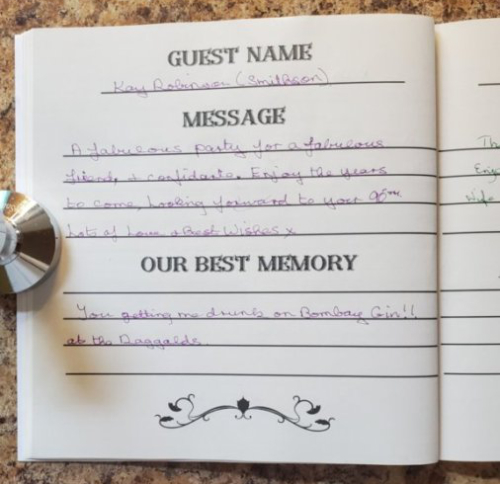 GUEST NAME
Kay Robinson (Smithson)
MESSAGE
A fabulous party for a fabulous
friend, & confidante. Enjoy the years
to come, looking forward to your 90th
Lots of Love & Best Wishes x
OUR BEST MEMORY
You getting me drunk on Bombay Gin!!
at the Daggalds
Th
Enj
Wife